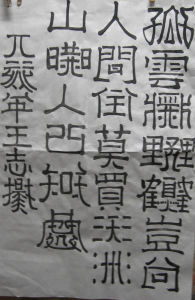 孤雲將野鶴豈向
人間住莫買沃洲
山時人已知處
年王志